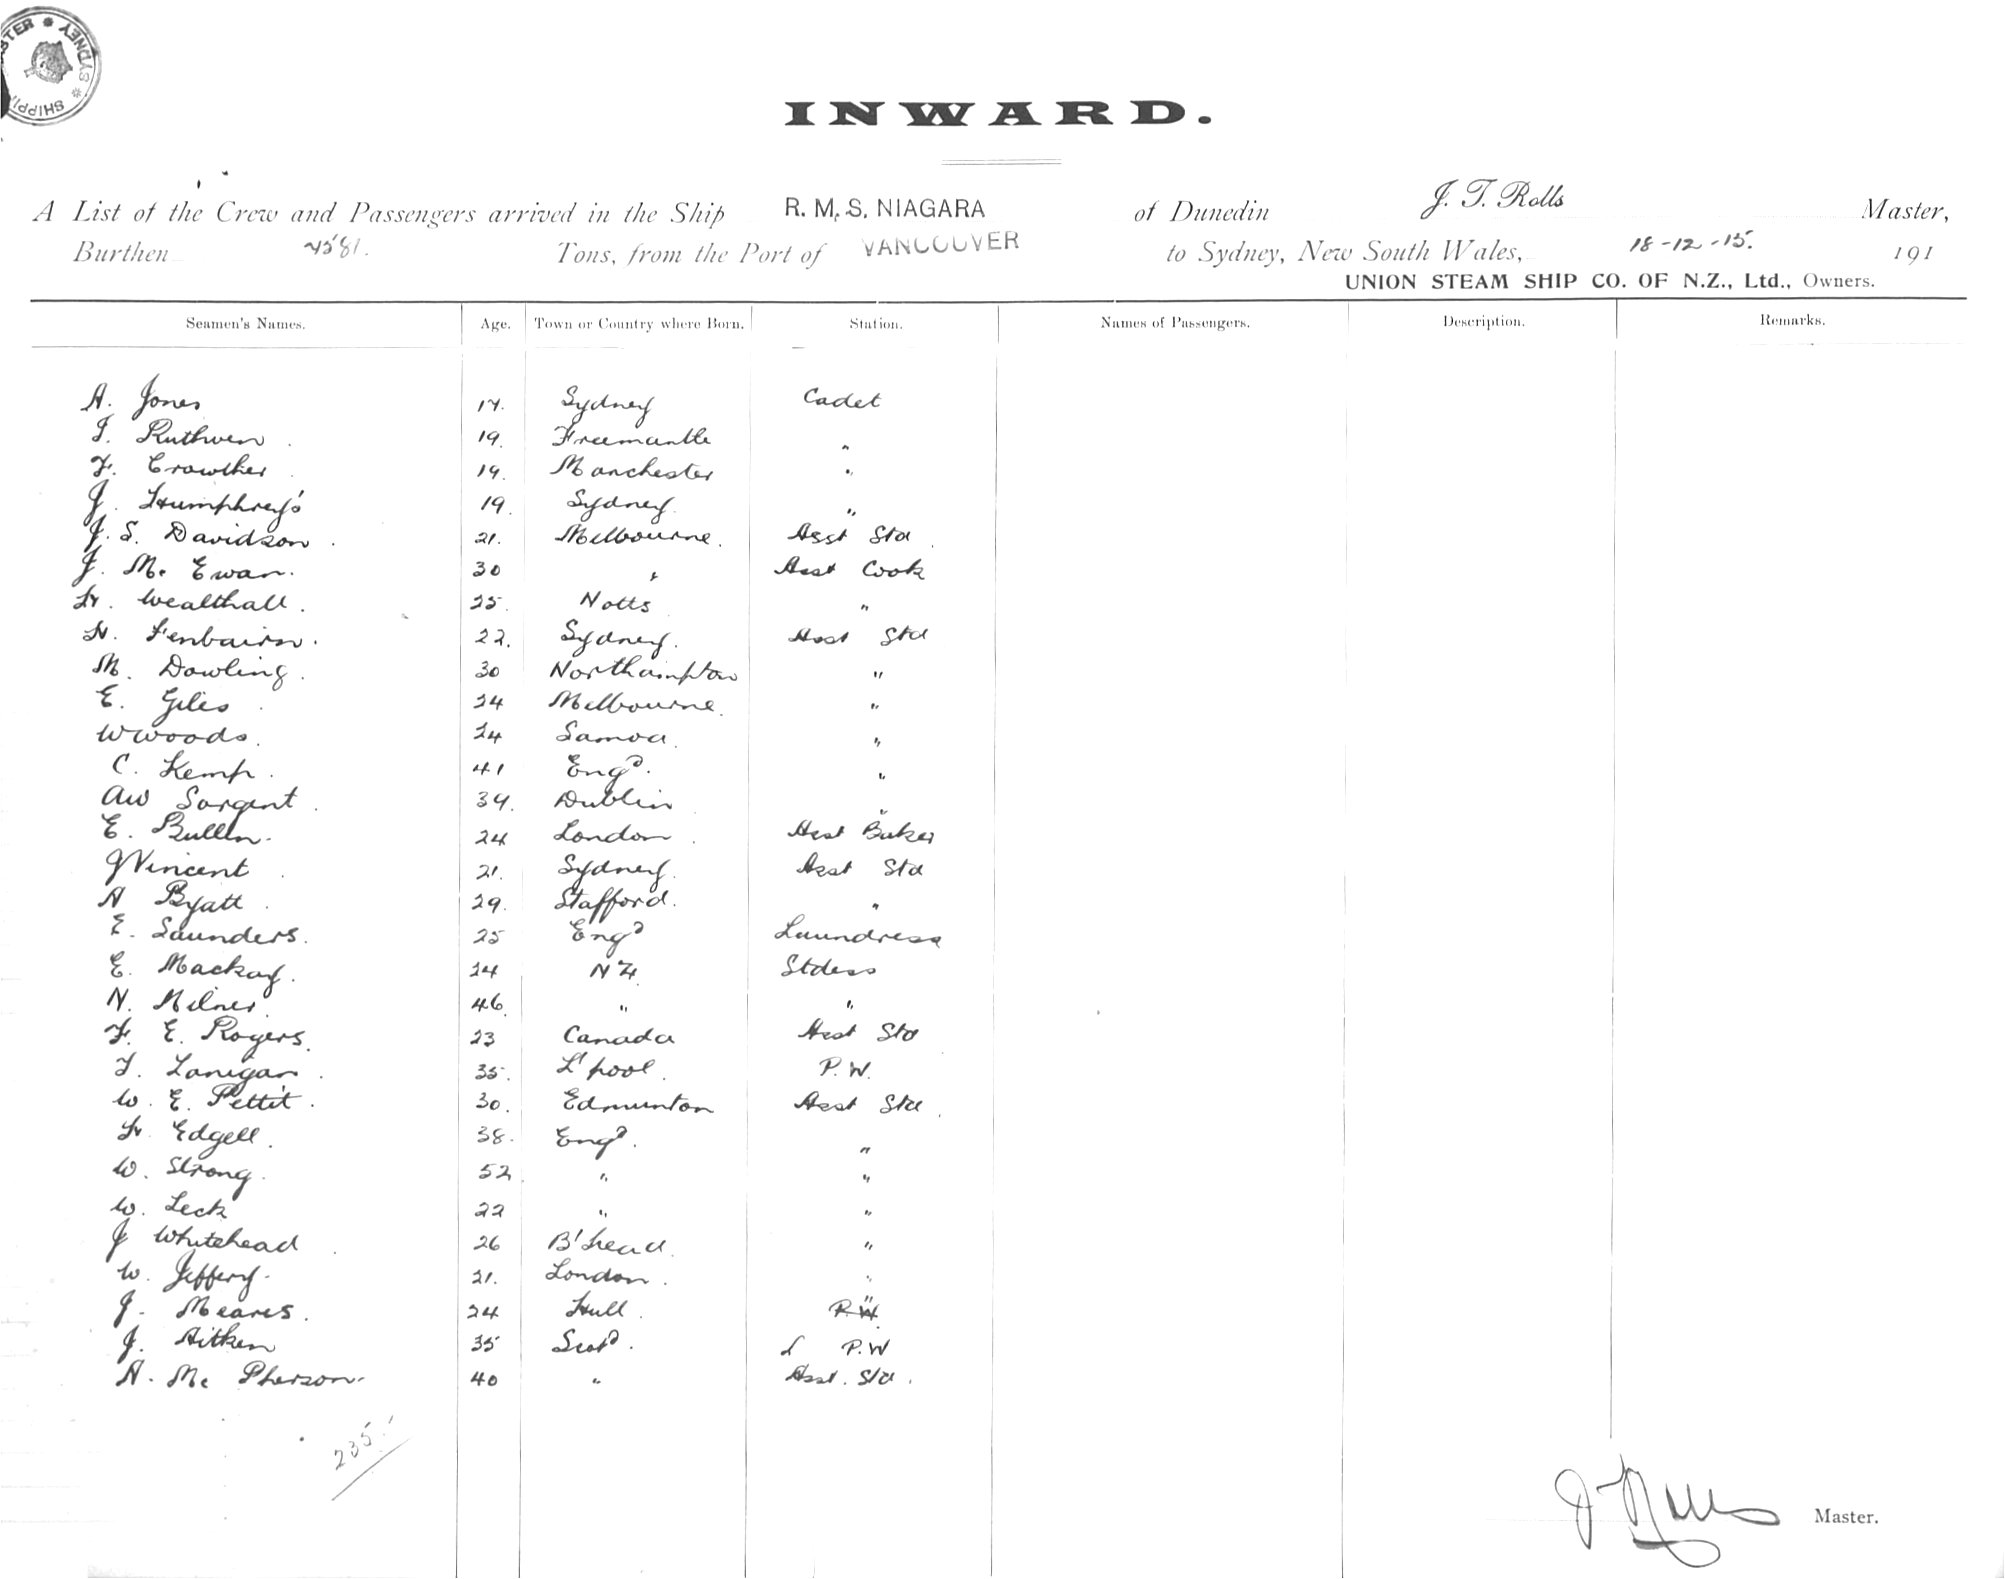 SHIPPI STER * SYDNEY *
INWARD.
A List of the Crew and Passengers arrived in the Ship R. M. S. NIAGARA of Dunedin J. T. Rolls Master,
Burthen 7581. Tons, from the Port of VANCOUVER to Sydney, New South Wales, 18-12-15. 191
UNION STEAM SHIP CO. OF N.Z., Ltd., Owners.
Seamen's Names. Age. Town or Country where Born. Station. Names of Passengers. Description. Remarks.
A. Jones 17. Sydney Cadet
J. Ruthven 19. Freemantle "
F. Crowther 19. Manchester "
J. Humphrey's 19. Sydney "
J. S. Davidson 21. Melbourne. Asst Std
J. Mc Ewan. 30 " Asst Cook
H. Wealthall. 25. Notts "
H. Fenbairn. 22. Sydney. Asst Std
M. Dowling. 30 Northampton "
E. Giles 24 Melbourne. "
W Woods. 24 Samoa. "
C. Kemp. 41 Engd. "
AW Sargent. 39. Dublin "
E. Bullen. 24 London. Asst Baker
J Vincent 21. Sydney. Asst Std
A Byatt 29. Stafford. "
E. Saunders. 25 Engd Laundress
E. Mackay. 24 NZ Stdess
N. Milner. 46. " "
F. E. Rogers. 23 Canada Asst Std
T. Lanigan. 35. L'pool. P.W.
W. E. Pettit. 30. Edmunton Asst Std.
H. Edgell. 38. Engd. "
W. Strong. 52. " "
W. Leck 22 " "
J Whitehead 26 B'head. "
W. Jeffery. 21. London. "
J. Meares. 24 Hull. P.W. "
J. Aitken 35 Scotd. L P.W
A. Mc Pherson. 40 " Asst. Std.
235.
J T Rolls Master.